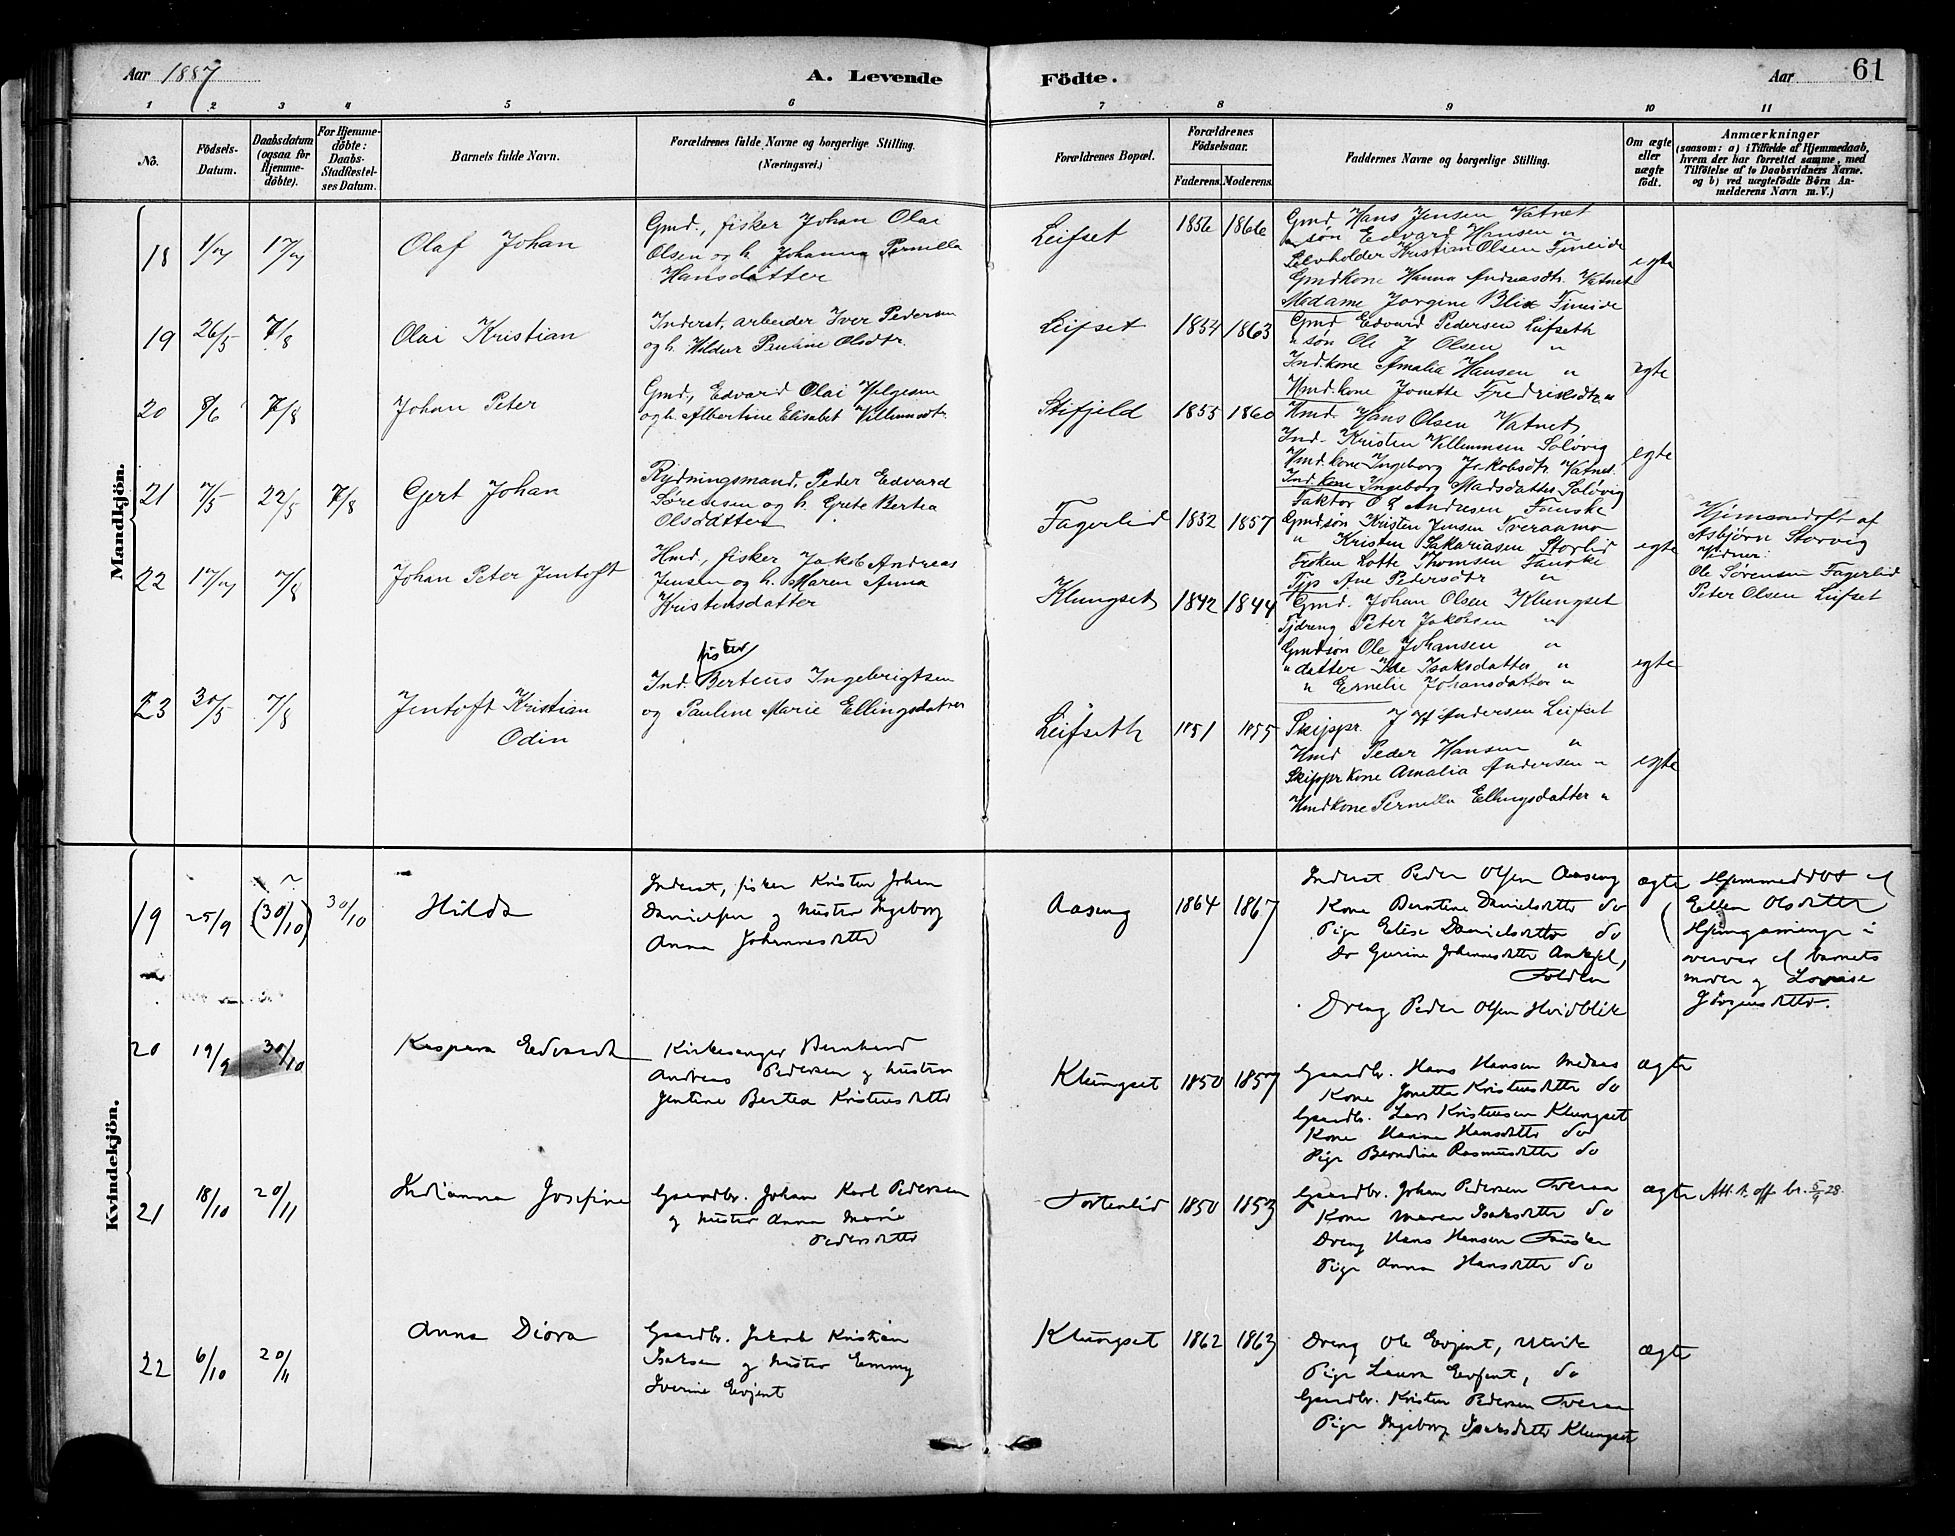 Aar 1887
A. Levende
Födte.
Aar
61
1 2 3 4 5 6 7 8 9 10 11
No.
Födsels-
Datum.
Daabsdatum
(ogsaa for
Hjemme-
döbte).
For Hjemme-
döbte:
Daabs-
Stadfæstel-
ses Datum.
Barnets fulde Navn.
Forældrenes fulde Navne og borgerlige Stilling.
(Næringsvei.)
Forældrenes Bopæl.
Forældrenes
Födselsaar.
Faderens. Moderens.
Faddernes Navne og borgerlige Stilling.
Om ægte
eller
uægte
födt.
Anmærkninger
(saasom: a) i Tilfælde af Hjemmedaab,
hvem der har forrettet samme, med
Tilföielse af to Daabsvidners Navne.
og b) ved uægtefödte Börn An-
melderens Navn m. V.)
Mandkjön.
18
1/7 17/7
Olaf Johan
Gmd., fisker Johan Olai
Olsen og h. Johanna Pernilla
Hansdatter
Leifset
1856 1866
Gmd Hans Jensen Vatnet
" søn Edvard Hansen "
Selvholder Kristian Olsen Fineide
Gmdkone Hanna Andreasdtr. Vatnet
Madame Jorgine Blix Fineide
egte
19
26/5 7/8
Olai Kristian
Inderst, arbeider Iver Pedersen
og h. Hildur Pauline Olsdtr.
Leifset
1854 1863
Gmd Edvard Pedersen Leifseth
" søn Ole J Olsen "
Ind.kone Amalia Hansen "
Hmd.kone Jonette Fredriksdtr "
egte
20
8/6 7/8
Johan Peter
Gmd, Edvard Olai Helgesen
og h. Albertine Elisabet Villumsdtr.
Stifjeld
1855 1860
Hmd Hans Olsen Vatnet
Ind. Kristen Villumsen Soløvig
Hmd.kone Ingeborg Jakobsdtr. Vatnet
Ind.kone Ingeborg Madsdatter Soløvig
egte
21
7/5 22/5 7/8
Gjert Johan
Rydningsmand, Peder Edvard
Sørensen og h. Grete Bertea
Olsdatter
Fagerlid
1832 1857
Faktor O E Andresen Fauske
Gmdsøn Kristen Jensen Tveraamo
" Kristen Sakariasen Storlid
Frøken Lotte Thomsen Fauske
Tjp Ane Pedersdtr "
egte
Hjemmedøft af
Asbjørn Storvig
Vidner:
Ole Sørensen Fagerlid
Peter Olsen Leifset
22
17/7 7/8
Johan Peter Jentoft
Hmd, fisker Jakob Andreas
Jensen og h. Maren Anna
Kristensdatter
Klungset
1842 1844
Gmd. Johan Olsen Klungset
Tjdreng Peter Jakobsen "
Gmdsøn Ole Johansen "
" datter Ide Isaksdatter "
" Ernelie Johansdatter "
egte
23
30/5 7/8
Jentoft Kristian
Odin
fisker
Ind. Berteus Ingebrigtsen
og Pauline Marie Ellingsdatter
Leifseth
1851 1855
Skippr. J H Andersen Leifset
Hmd Peder Hansen "
Skippr kone Amalia Andersen "
Hmdkone Pernilla Ellingsdatter "
egte
Kvindekjön.
19
25/9 (30/10) 30/10
Hilda
Inderst, fisker Kristen Johan
Danielsen og hustru Ingeborg
Anna Johannesdatter
Aaseng
1864 1867
Inderst Peder Olsen Aaseng
Kone Berntine Danielsdatter do
Pige Elise Danielsdatter do
Do Gurine Johannesdatter
Folden
Dreng Peder Olsen Hvidblik
ægte
Hjemmedöbt af
Ellen Olsdatter
i
overvær af barnets
moder og Lovise
20
19/9 30/10
Kaspara Edvarda
Kirkesanger Bernhard
Andreas Pedersen og hustru
Jentine Bertea Kristensdatter
Klungset
1850 1857
Gaardbr. Hans Hansen
Kone Jonetta Kristensdatter do
Gaardbr. Lars Kristensen Klungset
Kone Hanna Hansdatter do
Pige Berndine Rasmusdatter do
ægte
21
18/10 20/11
Indianna Josefine
Gaardbr. Johan Karl Pedersen
og hustru Anna Marie
Pedersdatter
Tortenlid
1850 1853
Gaardbr. Johan Pedersen Tveraa
Kone Maren Isaksdatter do
Dreng Hans Hansen Fauske
Pige Anna Hansdatter do
ægte
Att. t. off. br. 5/9 28.
22
6/10 20/11
Anna Diora
Gaardbr. Jakob Kristian
Isaksen og hustru Emmy
Iverine Evjent
Klungset
1862 1863
Dreng Ole Evjent, Utvik
Pige Laura Evjent, do
Gaardbr. Kristen Pedersen Tveraa
Pige Ingeborg Isaksdatter Klungset
ægte